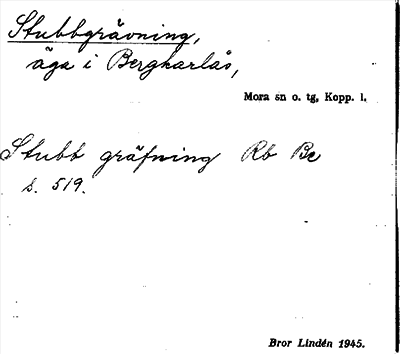 Stubbgrävning,
äga i Bergkarlås,
Mora sn o. tg, Kopp. l.
Stubb gräfning Rb Be
s. 519.
Bror Lindén 1945.